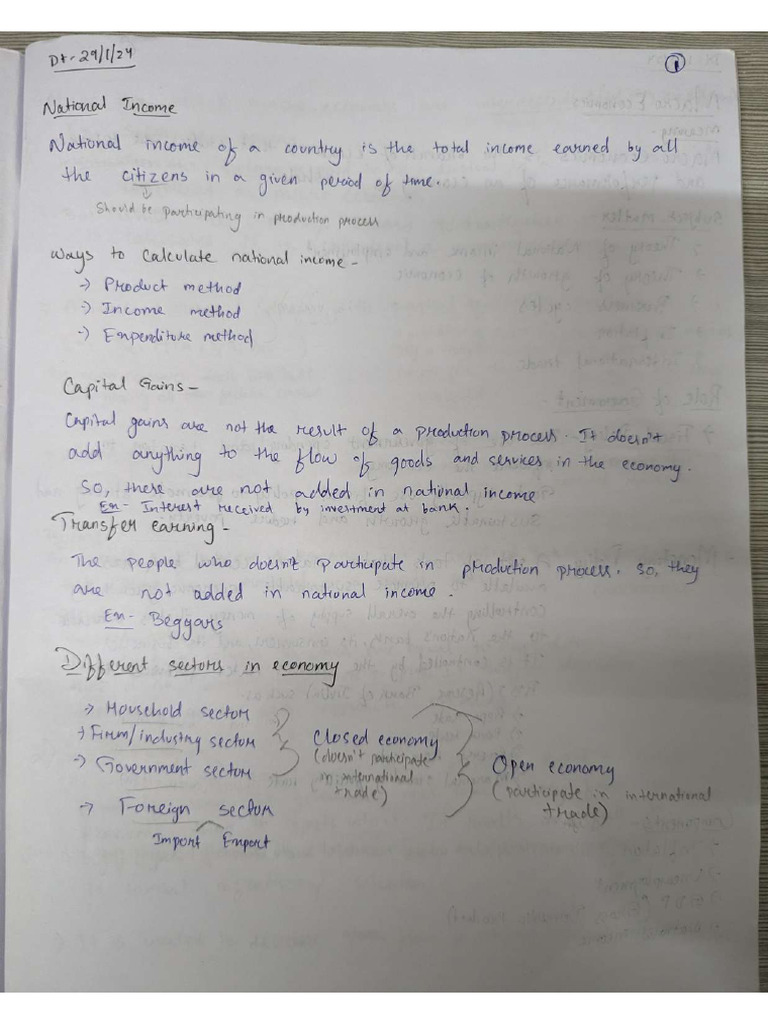 Dt- 29/1/24
1
National Income
National income of a country is the total income earned by all
the citizens in a given period of time.
Should be participating in production process
Ways to calculate national income -
-> Product method
-> Income method
-> Expenditure method
Capital Gains -
Capital gains are not the result of a production process. It doesn't
add anything to the flow of goods and services in the economy.
So, these are not added in national income
Ex- Interest received by investment at bank.
Transfer earning -
The people who doesn't participate in production process. so, they
are not added in national income.
Ex- Beggars
Different sectors in economy
-> Household sector
-> Firm/industry sector
-> Government sector
Closed economy
(doesn't participate
in international
trade)
Open economy
(participate in international
trade)
-> Foreign sector
Import Export